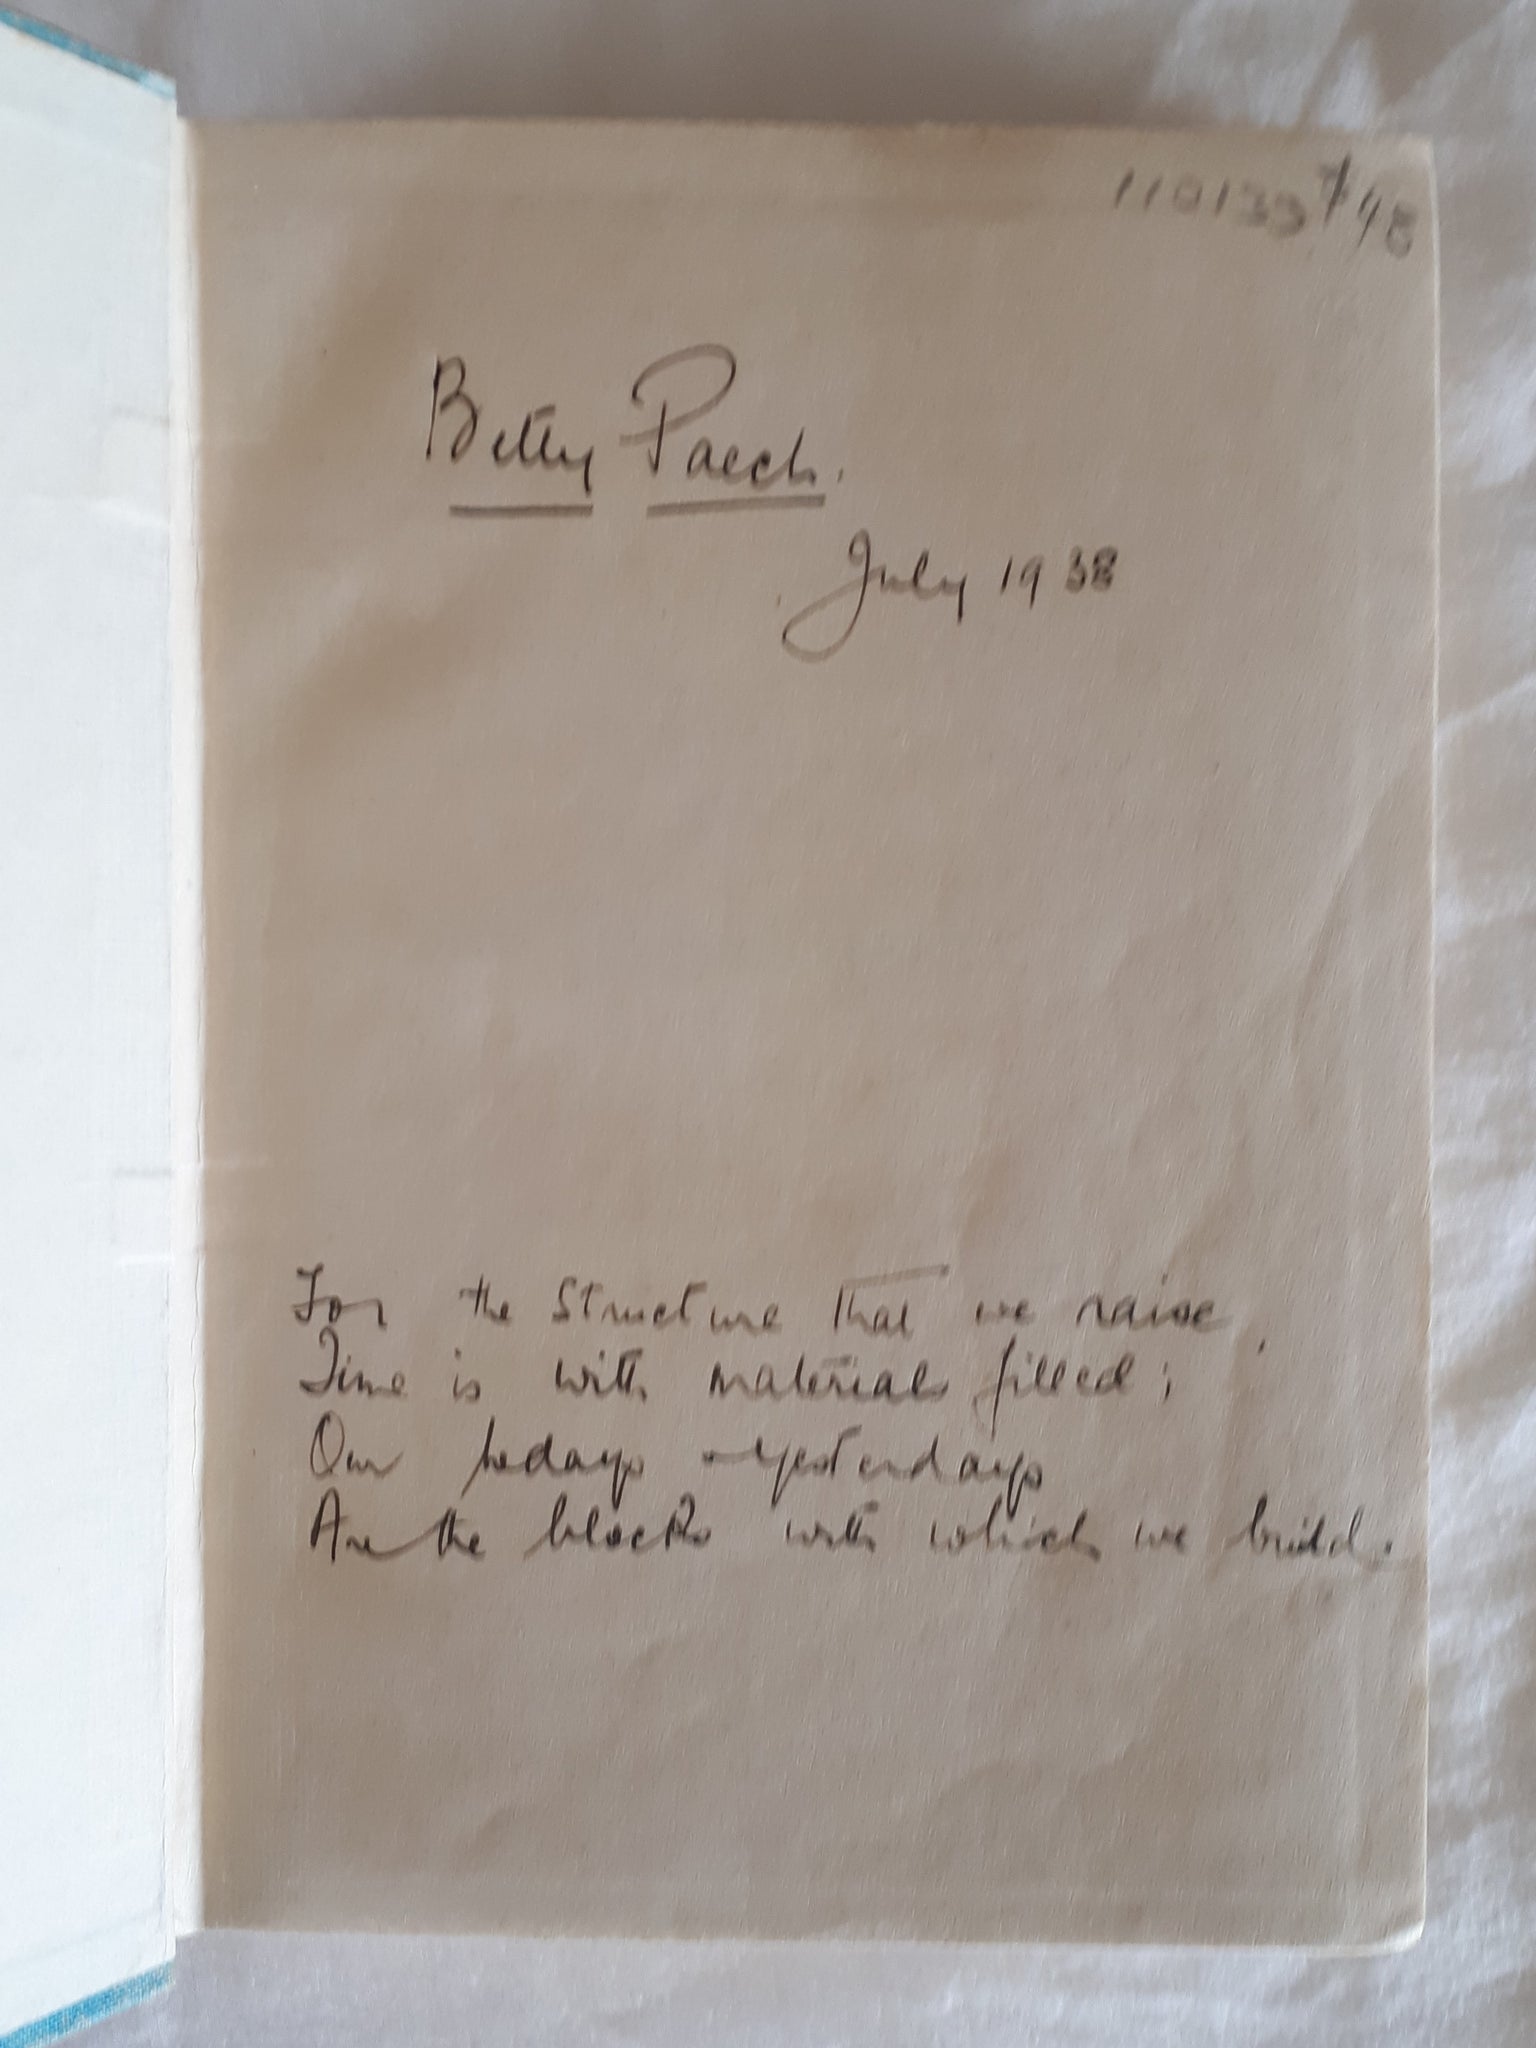 110133 $48
Betty Paech.
July 1938
For the structure that we raise,
Time is with materials filled;
Our todays & yesterdays
Are the blocks with which we build.